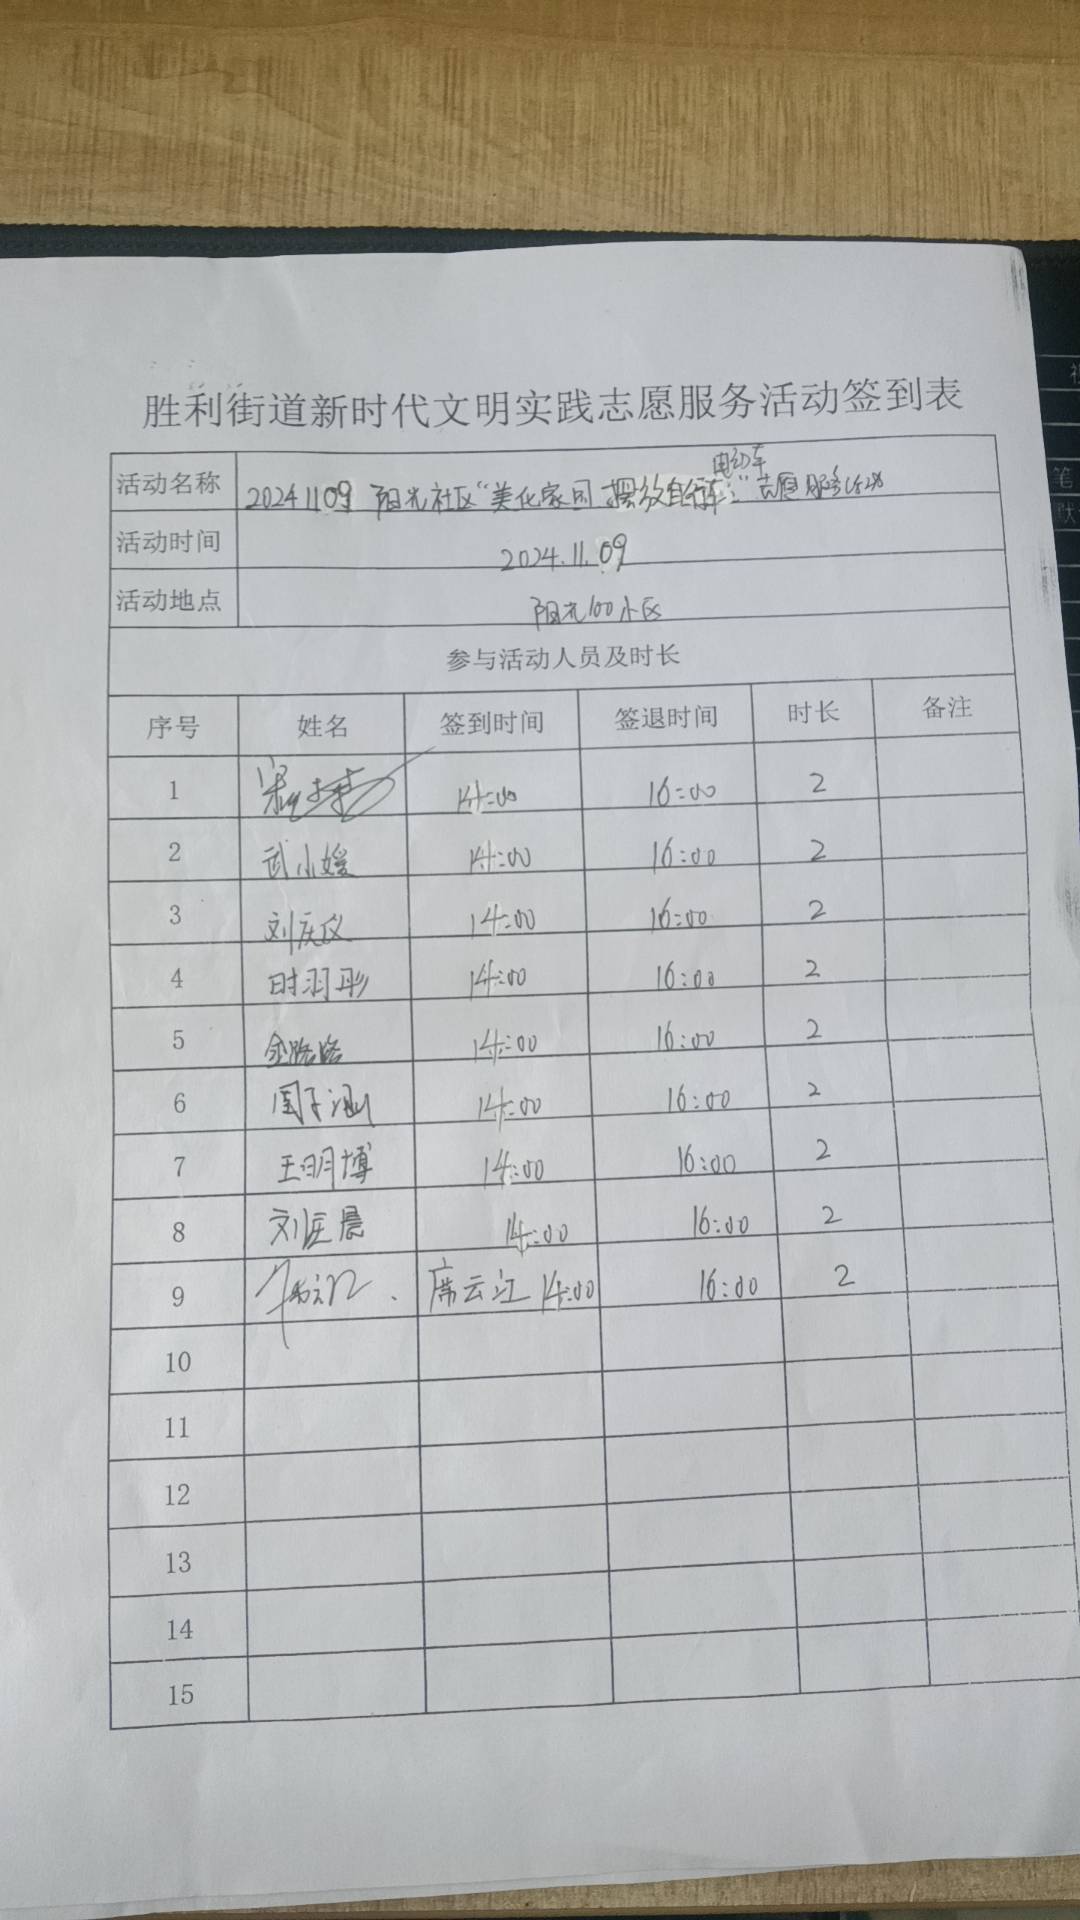 胜利街道新时代文明实践志愿服务活动签到表
活动名称 20241109 阳光社区“美化家园 摆放自行车、电动车”志愿服务活动
活动时间 2024.11.09
活动地点 阳光100小区
参与活动人员及时长
序号 姓名 签到时间 签退时间 时长 备注
1 14:00 16:00 2
2 武小媛 14:00 16:00 2
3 刘庆仪 14:00 16:00 2
4 时羽彤 14:00 16:00 2
5 金路路 14:00 16:00 2
6 周子涵 14:00 16:00 2
7 王明博 14:00 16:00 2
8 刘匡晨 14:00 16:00 2
9 席云江 14:00 16:00 2
10
11
12
13
14
15
笔
默